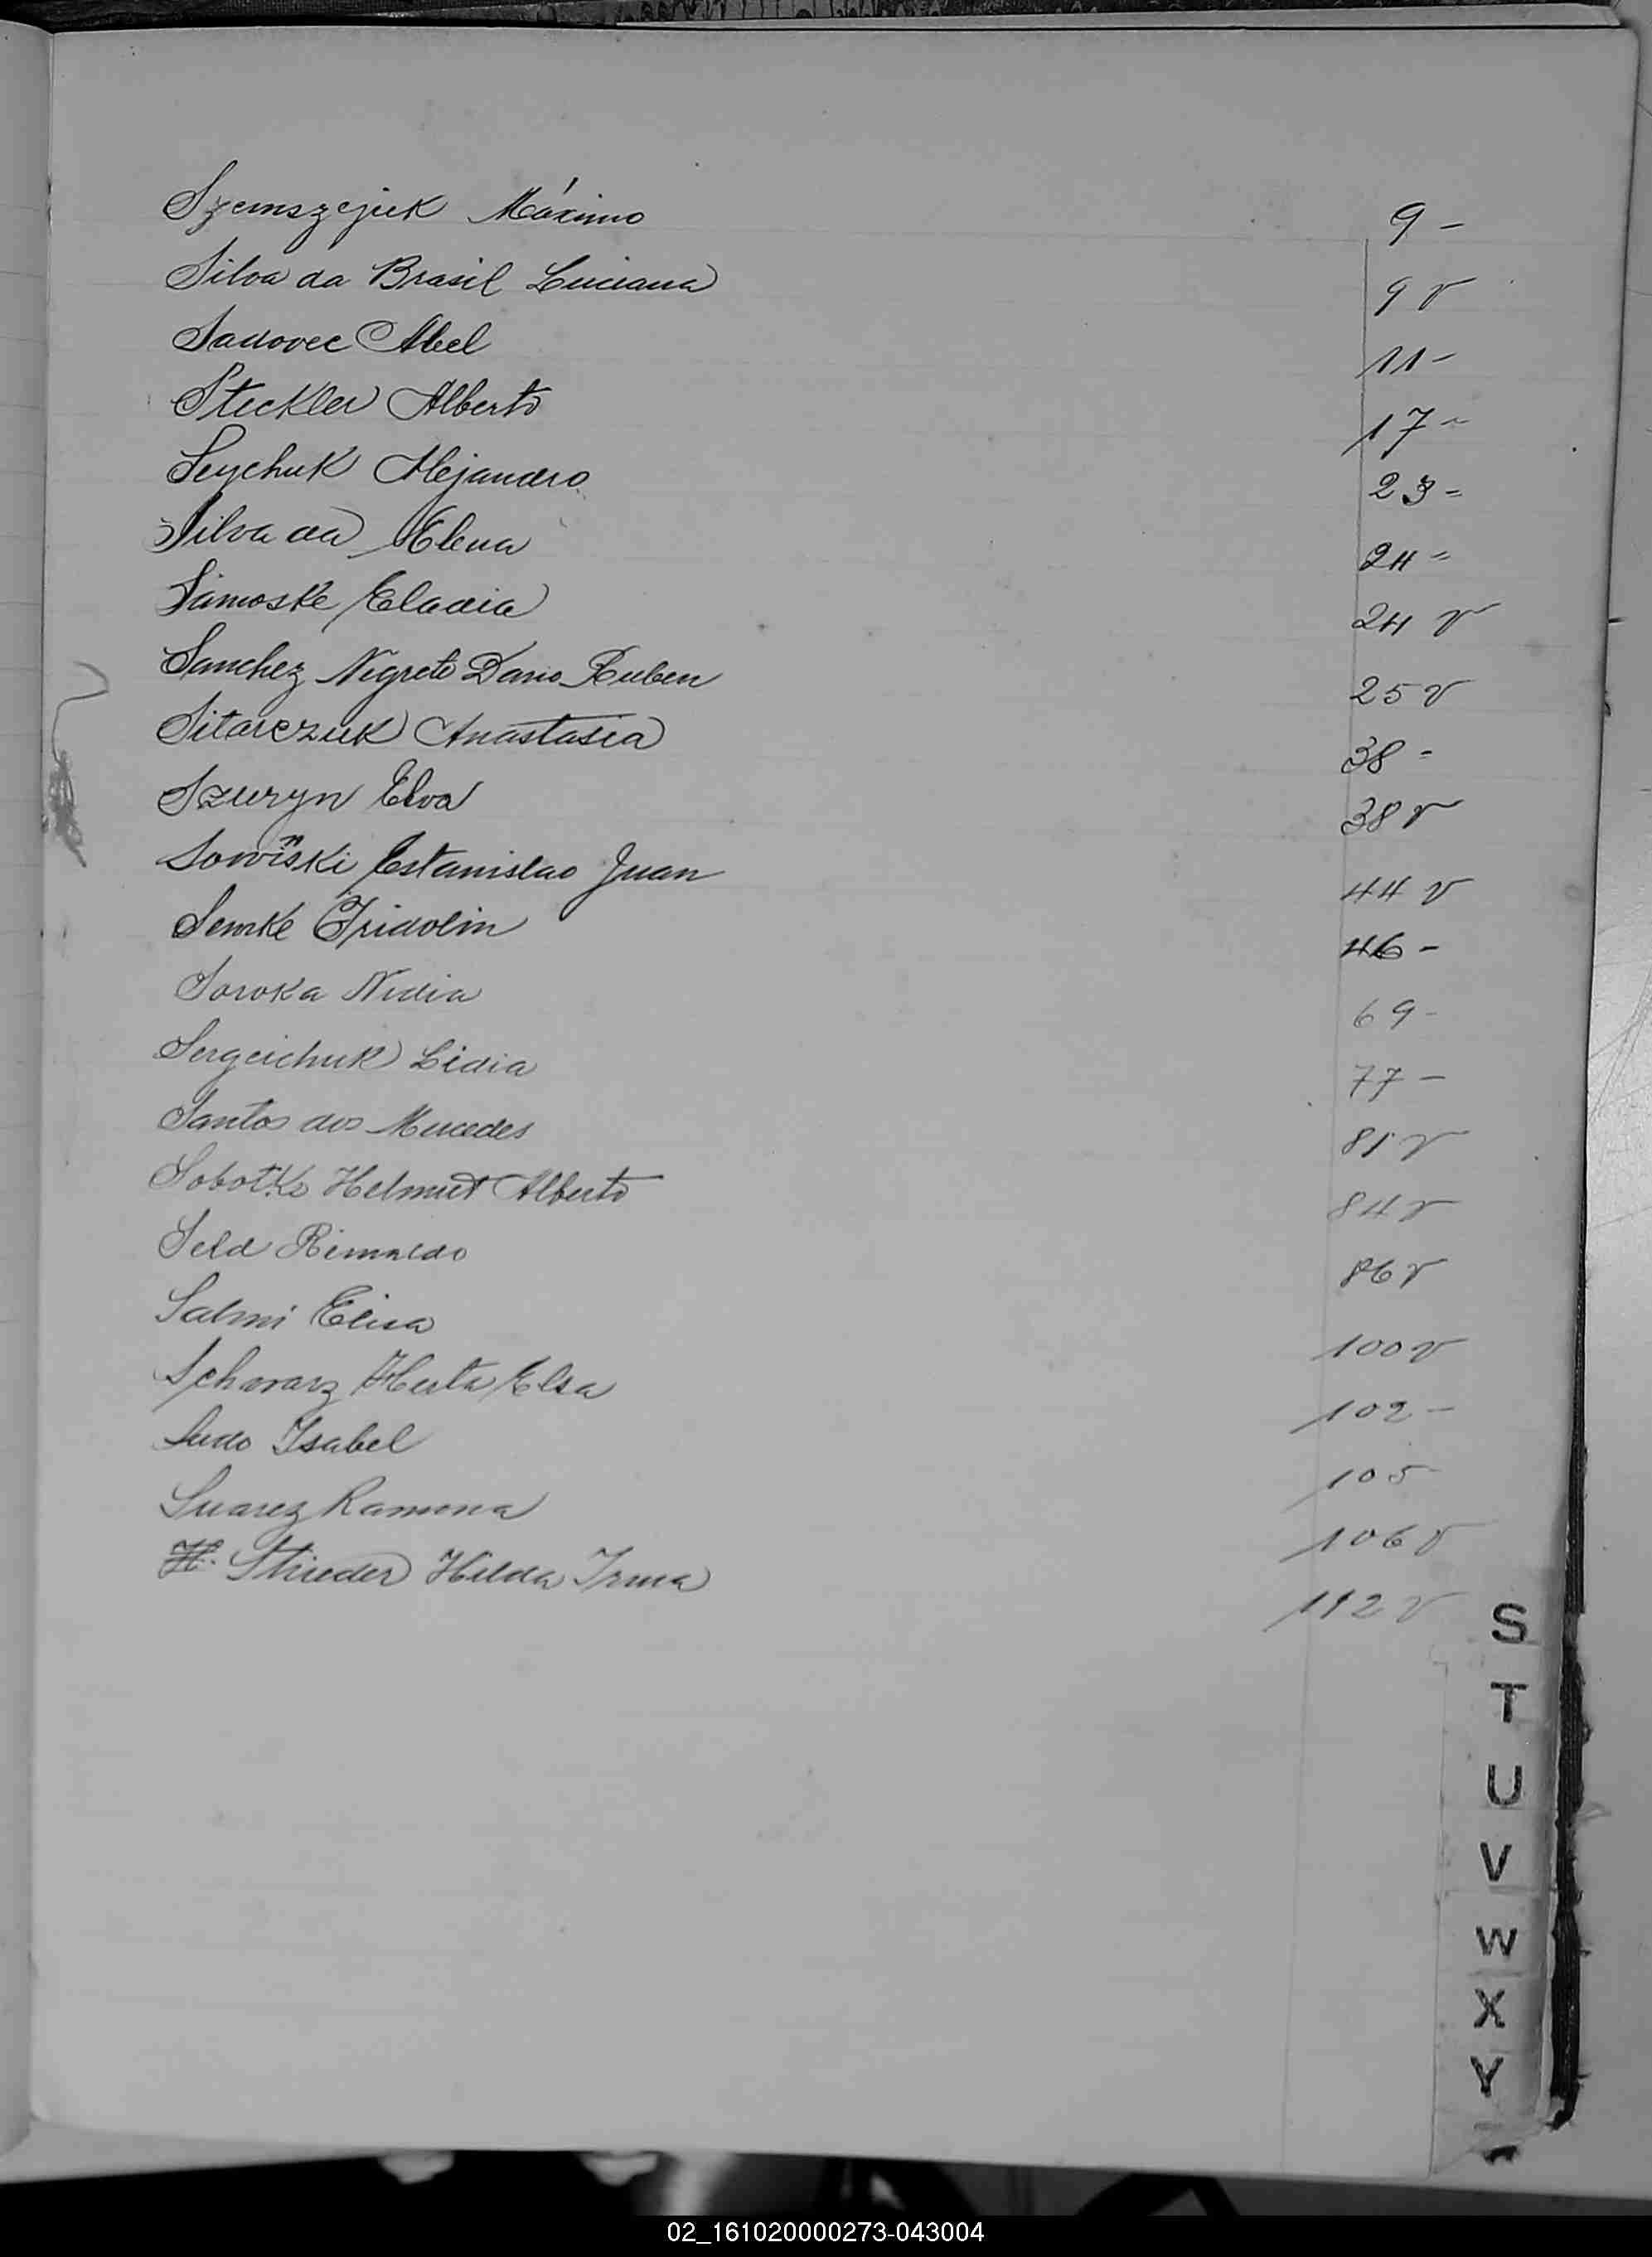 Szemszejuk Máximo 9 -
Silva da Brasil Luciana 9 v
Sadovec Abel 11 -
Steckler Alberto 17 -
Seychuk Alejandro 23 -
Silva da Elena 24 -
Simoske Eladia 24 v
Sanchez Negrete Dario Ruben 25 v
Sitarczuk Anastasia 38 -
Szuryn Elva 38 v
Sowinski Estanislao Juan 44 v
Semke Fridolin 46 -
Soroka Nidia 69 -
Sergeichuk Lidia 77 -
Santos dos Mercedes 81 v
Sobotke Helmut Alberto 84 v
Seld Rimaldo 86 v
Salmi Elisa 100 v
Schwarz Herta Elsa 102 -
Isabel 105 -
Suarez Ramona 106 v
H. Strieder Hilda Irma 112 v
S
T
U
V
W
X
Y
02_161020000273-043004